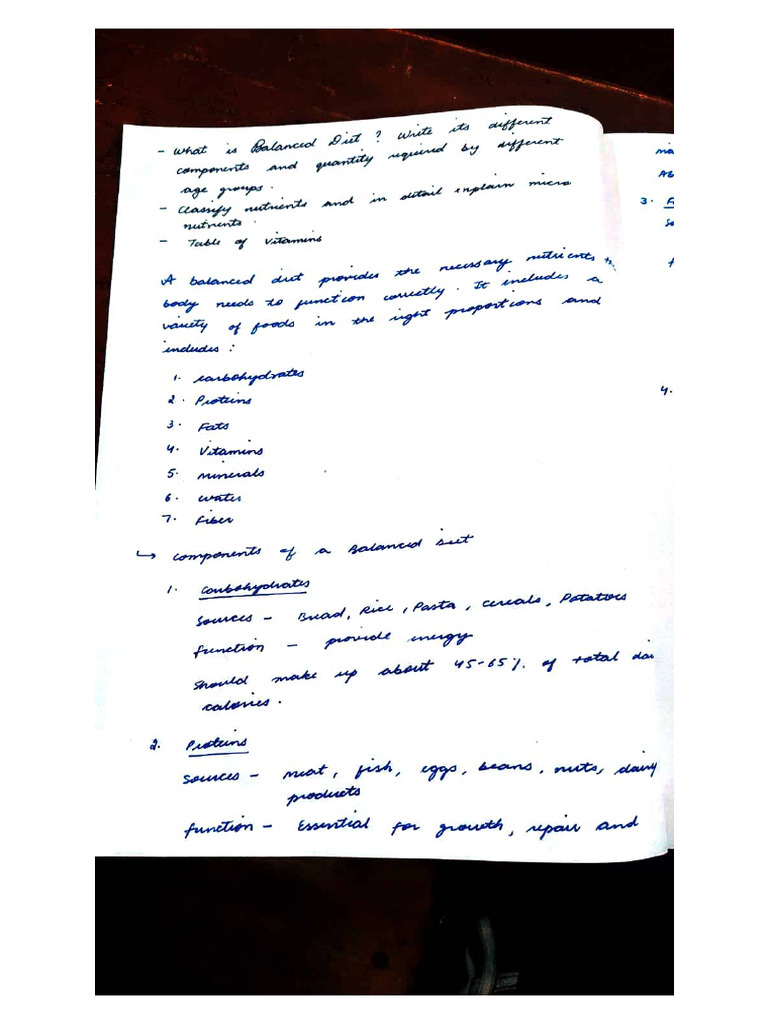 - What is Balanced Diet ? Write its different
components and quantity required by different
age groups.
- Classify nutrients and in detail explain micro
nutrients.
- Table of Vitamins
A balanced diet provides the necessary nutrients
body needs to function correctly. It includes a
variety of foods in the right proportions and
includes :
1. carbohydrates
2. Proteins
3. Fats
4. Vitamins
5. minerals
6. water
7. Fiber
↳ Components of a Balanced Diet
1. Carbohydrates
Sources - Bread, Rice, Pasta, cereals, Potatoes
function - provide energy
Should make up about 45-65% of total dai
calories.
2. Proteins
Sources - meat, fish, eggs, beans, nuts, dairy
products
function - Essential for growth, repair and
3.
4.